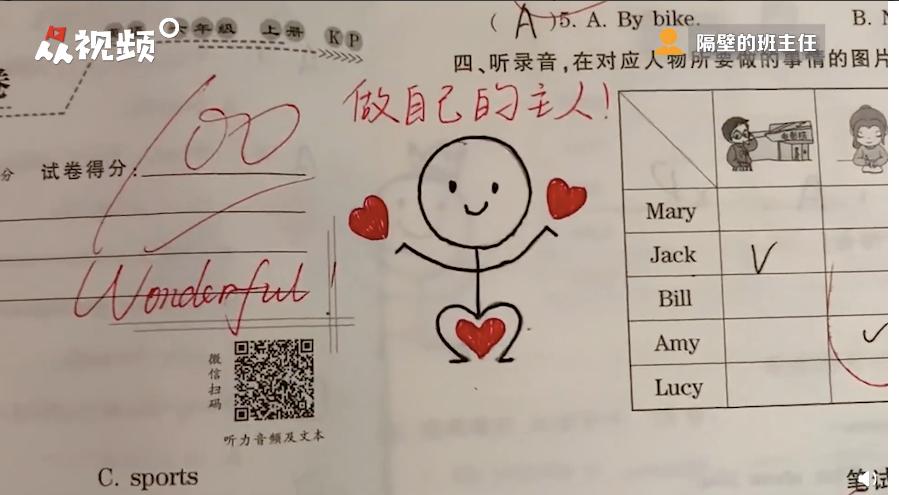 众视频
六年级 上册 KP
(A)5. A. By bike.
隔壁的班主任
四、听录音，在对应人物所要做的事情的图片
做自己的主人!
试卷得分:
100
电影院
Mary
Jack
Bill
Amy
Lucy
Wonderful!
微信扫码
听力音频及文本
C. sports
笔试